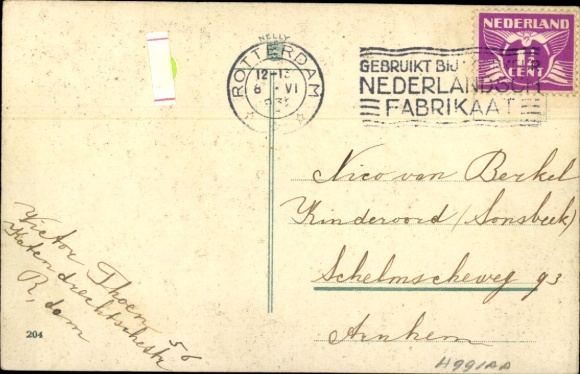 NELLY
ROTTERDAM
12-13
6 VI
GEBRUIKT BIJ
NEDERLANDSCH
FABRIKAAT
NEDERLAND
1½
CENT
Nico van Berkel
Kinderoord (Sonsbeek)
Schelmscheweg 93
Arnhem
Victor Thoen
Katendrechtschestr 56
R. dam
204
H991AA